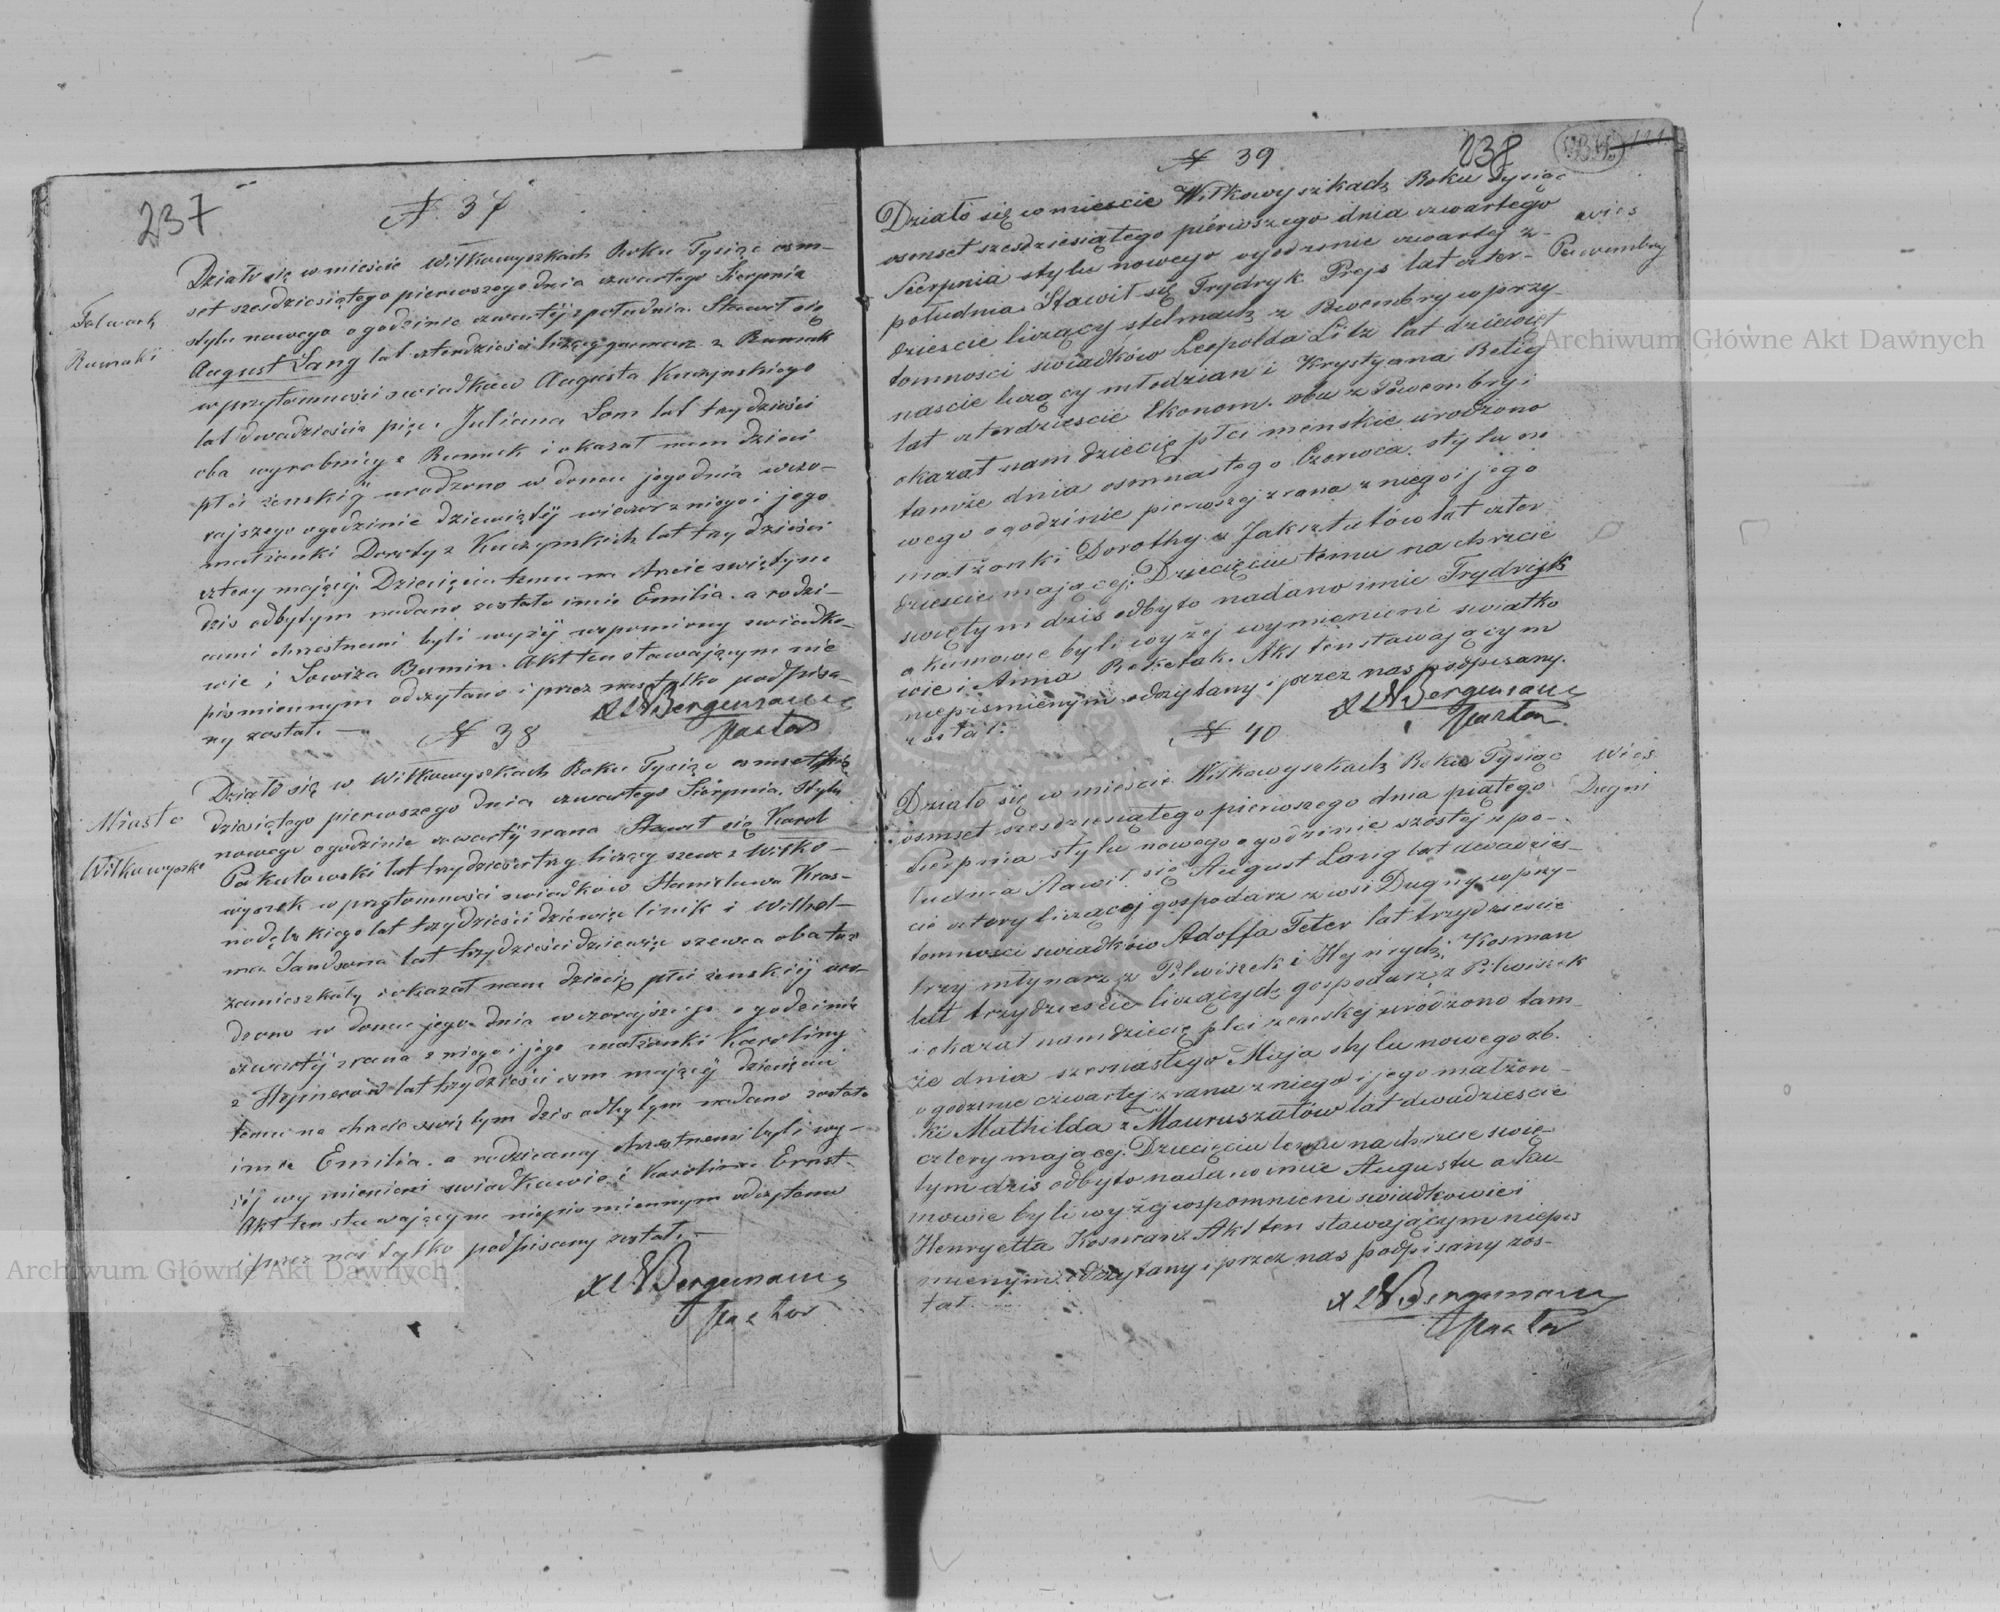 237
N. 37
Folwark
Rumoki
Działo się w mieście Wiłkowyszkach Roku Tysiąc osm-
set szesdziesiątego pierwszego dnia czwartego Sierpnia
stylu nowego o godzinie czwartéj z południa. Stawił się
August Lang lat czterdzieści liczący z Rumok
w przytomności swiadków Augusta Kuczynskiego
lat dwadzieścia pięc i Juliana Lam lat trzydzieści
oba wyrobnicy z Rumok i okazał nam dziecie
płci żenskiéj urodzone w domu jego dnia wczo-
rajszego o godzinie dziewiątéj wieczor z niego i jego
małżonki Doroty z Kuczynskich lat trzydzieści
cztery mającéj. Dziecięciu temu na chrzcie swiętym
dzis odbytym nadano zostało imie Emilia. a rodzi-
cami chrzestnemi byli wyżéj wspomieny swiadko-
wie i Lowiza Bumin. Akt ten stawającym nie
pismiennym odczytano i przez nas tylko podpisa-
ny został. —
XLWBergemann
Pastor
N 38
Miasto
Wiłkowyszki
Działo się w Wiłkowyszkach Roku Tysiąc osmset szes-
dziesiątego pierwszego dnia czwartego Sierpnia. Stylu
nowego o godzinie czwartéj zrana Stawił się Karol
Pokutowski lat trzydzieści trzy liczący szewc z Wiłko-
wyszek w przytomności swiadków Stanisława Kras-
nodębskiego lat trzydzieści dziéwięc linik i Wilhel-
ma Jandsona lat trzydzieści dziewięc szewca oba tu
zamieszkały i okazał nam dziecię płci żenskiéj uro-
dzono w domu jego dnia wczorajszego o godzinie
czwartéj zrana z niego i jego małżonki Karoliny
z Hejnerów lat trzydzieści osm mającéj dziecięciu
temu na chrzcie swiętym dzis odbytym nadano zostało
imie Emilia. a rodzicamy chrzestnemi byli wy-
żéj wymienieni swiadkowie i Karolina Ernst-
Akt ten stawającym niepismiennym odczytano
i przez nas tylko podpisany został. —
XLWBergemann
Pastor
238
N 39
wies
Powembry
Działo się w miescie Wiłkowyszkach Roku Tysiąc
osmset szesdziesiątego piérwszego dnia czwartego
Sierpnia stylu nowego o godzinie czwartej z-
południa Stawił się Frydryk Prejs lat czter-
dziescie liczący stelmach z Powembry w przy-
tomnosci swiadków Leopolda Litz lat dziewięt
nascie liczący młodzian i Krystyana Betig
lat czterdziescie Ekonom. oba z Powembry i
okazał nam dziecię płci menskie urodzono
tamże dnia osmnastego Czerwca. stylu no
wego o godzinie pierwszej z rana z niego i jego
małżonki Dorothy z Jaksztatów lat czter
dziescie mającej; Dziecięciu temu na chrzcie
swiętym dzis odbyto nadano imie Frydryk
a kumowie byli wyżej wymienieni swiatko
wie i Anna Reketak. Akt ten stawającym
niepismienym odczytany i przez nas podpisany.
został:
XLWBergemann
Pastor.
N 40
Wies
Dugni
Działo się w miescie Wiłkowyszkach Roku Tysiąc
osmset szesdziesiątego pierwszego dnia piątego
Sierpnia stylu nowego o godzinie szóstej z po-
ludnia Stawił się August Lang lat dwadzies-
cie cztery liczącej gospodarz z wsi Dugny w przy-
tomnosci swiadków Adolfa Feter lat trzydziescie
trzy młynarz z Pilwiszek i Hejnrydz Kosman
lat trzydziescie liczących gospodarz z Pilwiszek
i okazał nam dziecię płci żenskej urodzono tam-
że dnia szesnastego Maja stylu nowego r.b.
o godzinie czwartej z rana z niego i jego małżon-
ki Mathilda z Mauruszatów lat dwadziescie
cztery mającej. Dziecięciu temu na chrzcie swię-
tym dzis odbyto nadano imie Augusta a ku-
mowie byli wyżej wspomnieni swiadkowie i
Henryetta Kosman: Akt ten stawającym niepis
mienym odczytany i przez nas podpisany zos-
tał.
XLWBergemann
Pastor
Archiwum Główne Akt Dawnych
Archiwum Główne Akt Dawnych